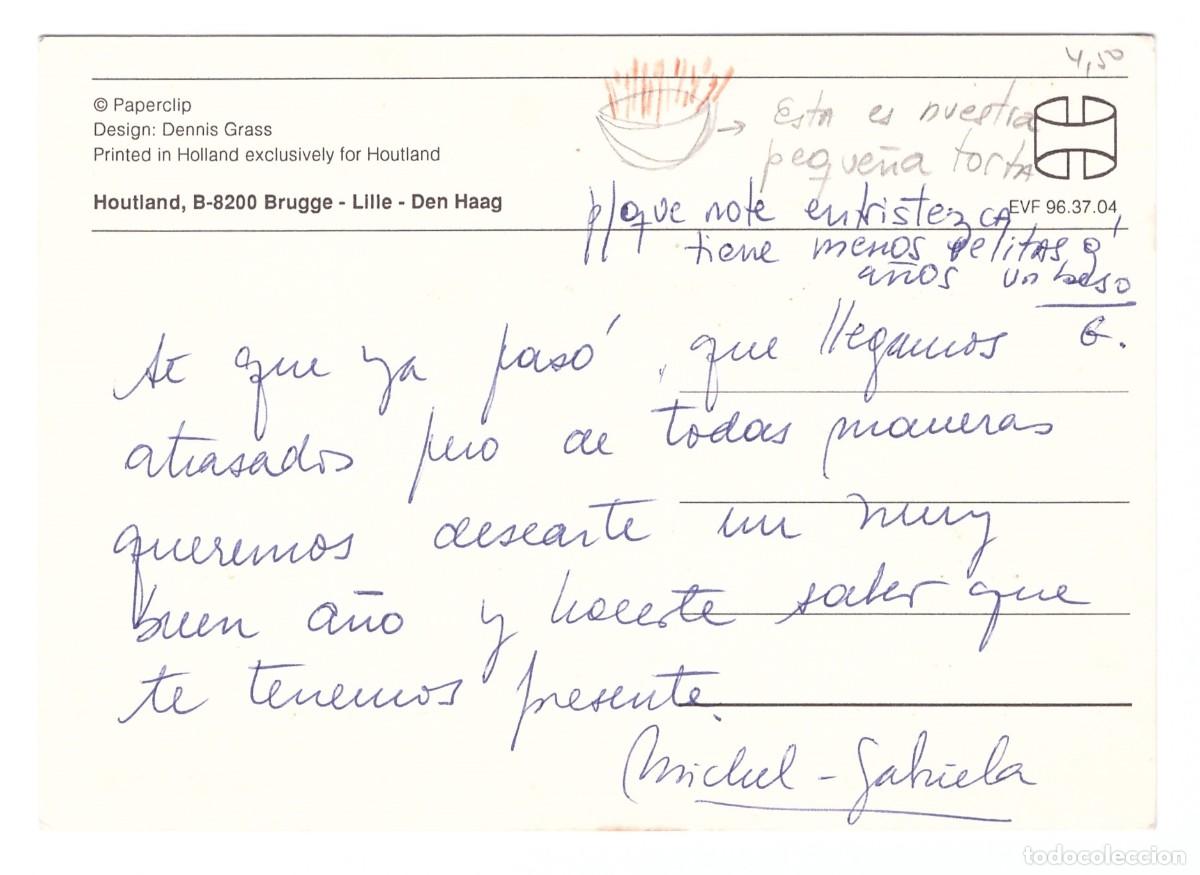 4,50
© Paperclip
Design: Dennis Grass
Printed in Holland exclusively for Houtland
Houtland, B-8200 Brugge - Lille - Den Haag
→ Esta es nuestra
pequeña torta
EVF 96.37.04
p/que no te entristezca,
tiene menos velitas q'
años un beso
G.
Sé que ya pasó, que llegamos
atrasados pero de todas maneras
queremos desearte un muy
buen año y hacerte saber que
te tenemos presente.
Michel - Gabriela
todocoleccion